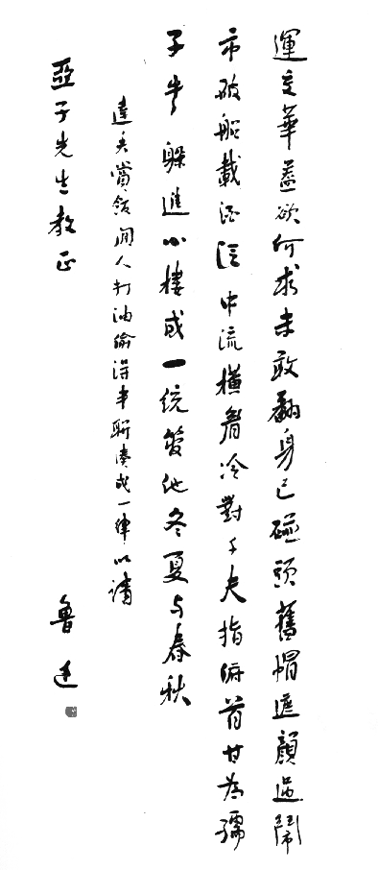 運交華蓋欲何求未敢翻身已碰頭舊帽遮顏過鬧
市破船載酒泛中流橫眉冷對千夫指俯首甘為孺
子牛躲進小樓成一統管他冬夏与春秋
達夫賞飯閒人打油偷得半聯湊成一律以請
亞子先生教正 魯迅